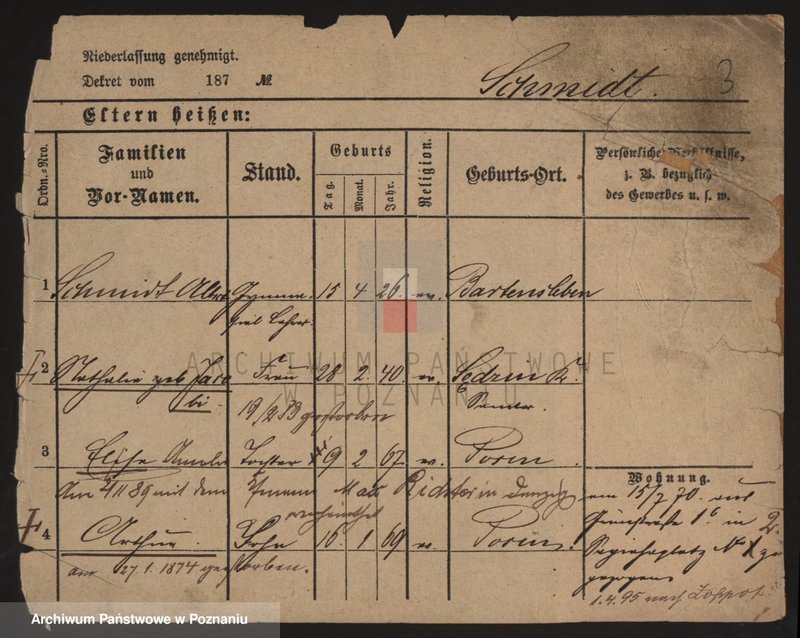 Niederlassung genehmigt.
Dekret vom 187 №
Schmidt.
3
Eltern heißen:
Ordn.-Nro.
Familien und Vor-Namen.
Stand.
Geburts
Tag.
Monat.
Jahr.
Religion.
Geburts-Ort.
Persönliche Verhältnisse,
z. B. bezüglich
des Gewerbes u. s. w.
1 Schmidt Gymna- 15 4 26. ev. Bartensleben
sial Lehrer.
2 Nathalie geb Frau 28 2. 40. ev.
19/2 83 gestorben
3 Elise Tochter 9 2 67. ev. Posen.
Wohnung.
am 4/11 89 mit dem Max Richter in Danzig
verheirathet
am 15/7 70. aus
in 2.
4 Arthur. Sohn 16. 1 69 ev. Posen.
am 27.1.1874 gestorben.
gezogen
1.4.95 nach Zoppot.
ARCHIWUM PAŃSTWOWE
W POZNANIU
Archiwum Państwowe w Poznaniu